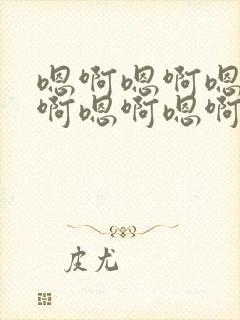 嗯啊嗯啊嗯
啊嗯啊嗯啊
皮尤